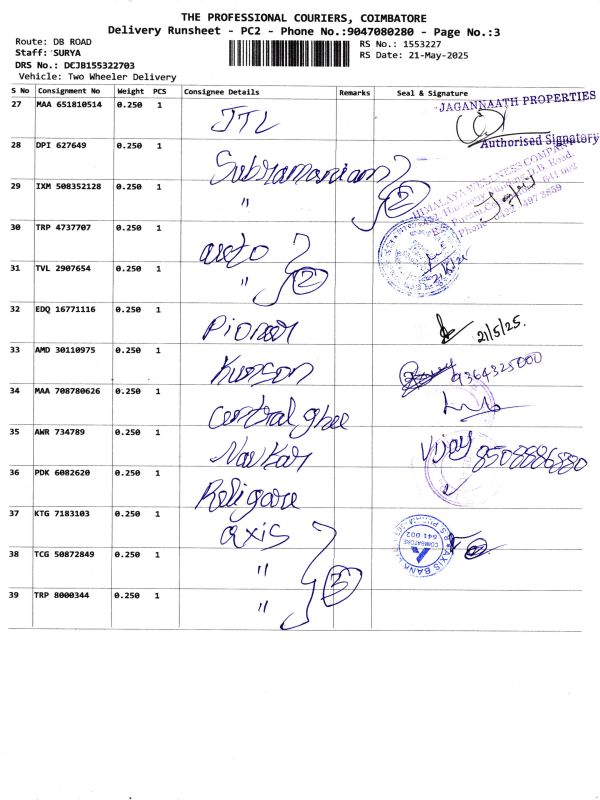 THE PROFESSIONAL COURIERS, COIMBATORE
Delivery Runsheet - PC2 - Phone No.:9047080280 - Page No.:3
Route: DB ROAD
Staff: SURYA
DRS No.: DCJB155322703
Vehicle: Two Wheeler Delivery
RS No.: 1553227
RS Date: 21-May-2025
S No Consignment No Weight PCS Consignee Details Remarks Seal & Signature
27 MAA 651810514 0.250 1 JTL JAGANNAATH PROPERTIES
Authorised Signatory
28 DPI 627649 0.250 1 Subramaniam
HIMALAYA WELLNESS COMPANY
29 IXM 508352128 0.250 1 " 2
30 TRP 4737707 0.250 1 auto
31 TVL 2907654 0.250 1 " 2
32 EDQ 16771116 0.250 1 Pioneer 21/5/25.
33 AMD 30110975 0.250 1 Kurson 9364325000
34 MAA 708780626 0.250 1 central ghee
35 AWR 734789 0.250 1 Navkar Vijay 8508886880
36 PDK 6082620 0.250 1 Religare
37 KTG 7183103 0.250 1 axis
AXIS BANK
COIMBATORE
641 002
38 TCG 50872849 0.250 1 "
39 TRP 8000344 0.250 1 " 3